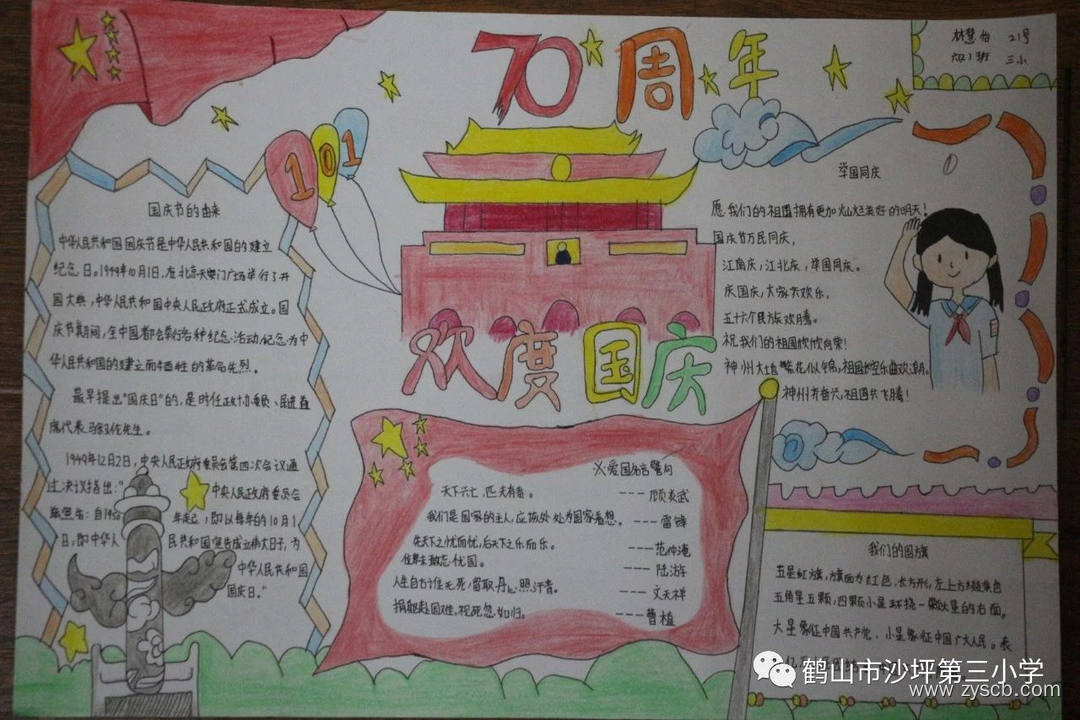 70周年
林慧怡 21号
六(2)班 三小
101
国庆节的由来
中华人民共和国国庆节是中华人民共和国的建立
纪念日。1949年10月1日,在北京天安门广场举行了开
国大典,中华人民共和国中央人民政府正式成立。国
庆节期间,全中国都会举行各种纪念活动,纪念为中
华人民共和国的建立而牺牲的革命先烈。
最早提出“国庆日”的,是时任政协委员、民进首
席代表马叙伦先生。
1949年12月2日,中央人民政府委员会第四次会议通
过决议指出:“ 中央人民政府委员会
宣告:自1950 年起,即以每年的10月1
日,即中华人 民共和国宣告成立的大日子,为
中华人民共和国
国庆日。”
欢度国庆
爱国名言警句
天下兴亡,匹夫有责。 ---顾炎武
我们是国家的主人,应该处处为国家着想。 ---雷锋
先天下之忧而忧,后天下之乐而乐。 ---范仲淹
位卑未敢忘忧国。 ---陆游
人生自古谁无死,留取丹心照汗青。 ---文天祥
捐躯赴国难,视死忽如归。 ---曹植
举国同庆
愿我们的祖国拥有更加灿烂美好的明天!
国庆节万民同庆,
江南庆,江北庆,举国同庆。
庆国庆,大家共欢乐,
五十六个民族欢腾。
祝我们的祖国欣欣向荣!
神州大地繁花似锦,祖国长空乐曲欢潮。
神州齐奋飞,祖国共飞腾!
我们的国旗
五星红旗,旗面为红色,长方形,左上方缀黄色
五角星五颗,四颗小星环绕一颗大星的右面。
大星象征中国共产党,小星象征中国广大人民。表
鹤山市沙坪第三小学
www.zyscb.com